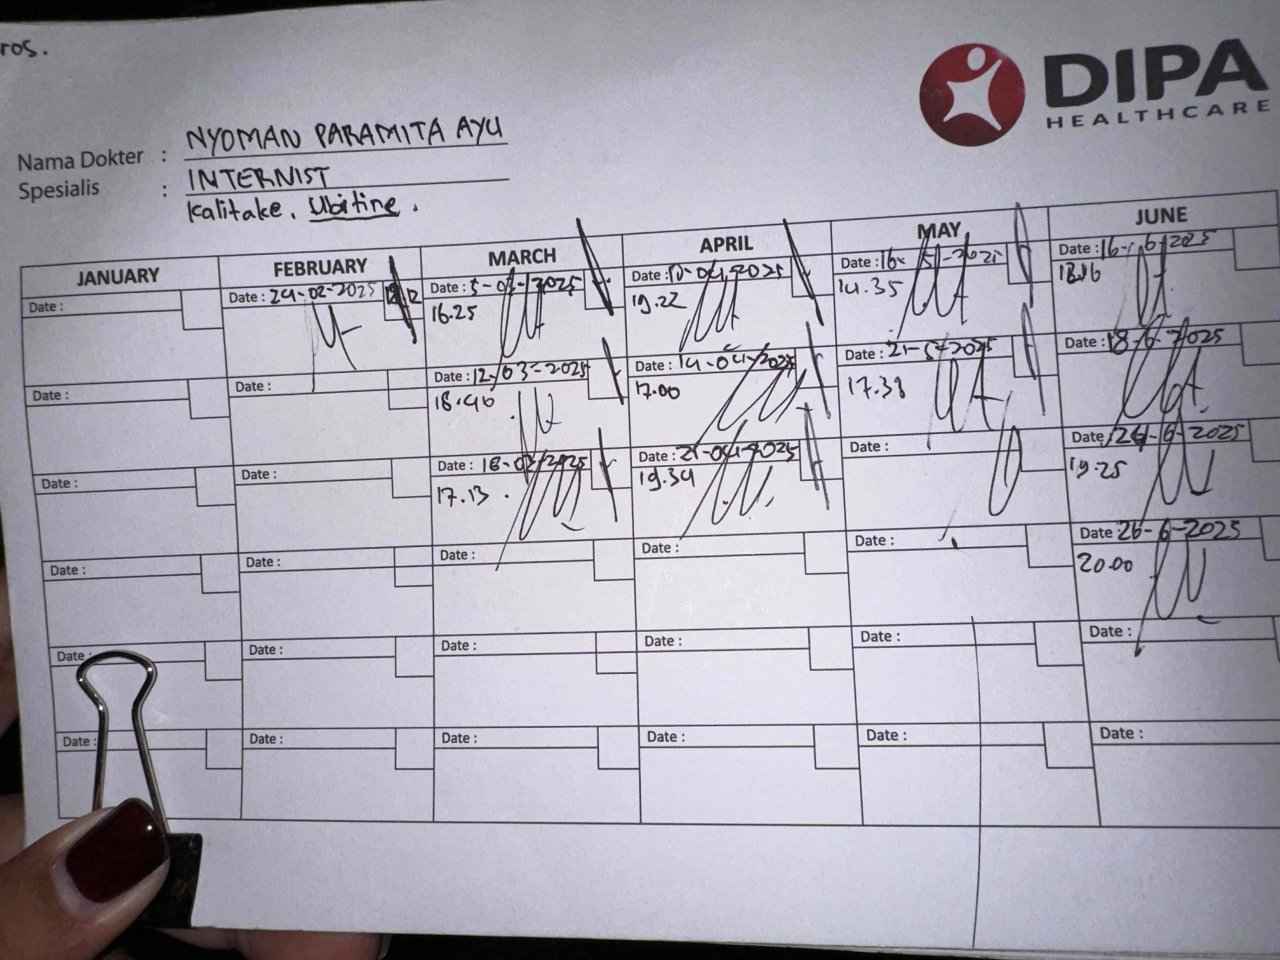 ros.
DIPA
HEALTHCARE
Nama Dokter : NYOMAN PARAMITA AYU
Spesialis : INTERNIST
Kalitake. Ubitine.
JANUARY FEBRUARY MARCH APRIL MAY JUNE
Date : Date : 24-02-2025 Date : 5-03-2025 Date : 10-04-2025 Date : 16-5-2025 Date : 16-6-2025
16.25 19.22 14.35
Date : Date : Date : 12-03-2025 Date : 14-04-2025 Date : 21-5-2025 Date : 18-6-2025
18.40 17.00 17.38
Date : Date : Date : 18-03-2025 Date : 21-04-2025 Date : Date : 24-6-2025
17.13 19.34 19.25
Date : Date : Date : Date : Date : Date 26-6-2025
20.00
Date : Date : Date : Date : Date : Date :
Date : Date : Date : Date : Date : Date :